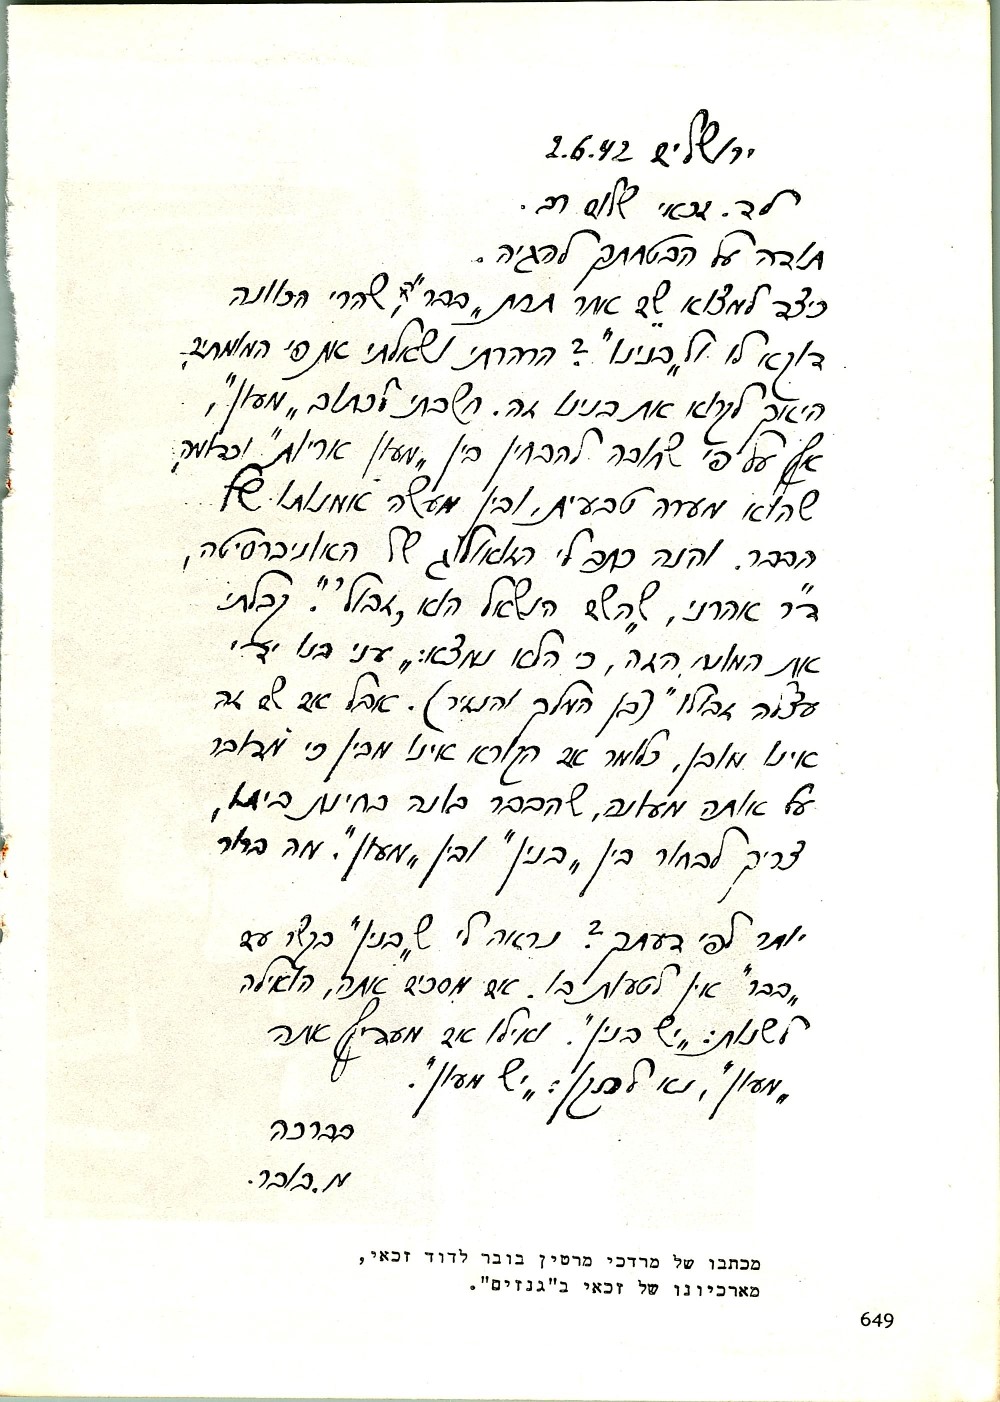 ירושלים 2.6.42
לד. זכאי שלום רב.
תודה על הבטחתך להגיה.
כיצד למצוא שם אחר תחת „בבר", שהרי הכוונה
דוקא לו ול„בנינו"? הרהרתי ושאלתי את פי המומחים,
היאך לקרוא את בנינו זה. חשבתי לכתוב „מעון",
אף על פי שחובה להבחין בין „מעון אריות" וכדומה,
שהוא מערה טבעית, ובין מעשה אמנותו של
הבבר. והנה כתב לי הזואולוג של האוניברסיטה,
ד"ר אהרני, „שהשם הנשאל הוא ‚זבול'". קבלתי
את המונח הזה, כי הלא נמצא: „עני בנו ידי
עצלה זבולו" (בן המלך והנזיר). אבל אם שם זה
אינו מובן, כלומר אם הקורא אינו מבין כי מדובר
על אותה מעונה, שהבבר בונה בחינת ביתו,
צריך לבחור בין „בנין" ובין „מעון". מה ברור
יותר לפי דעתך? נראה לי ש„בנין" בקשר עם
„בבר" אין לטעות בו. אם מסכים אתה, הואילה
לשנות: „יש בנין". ואילו אם מעדיף אתה
„מעון", נא לתקן: „יש מעון".
בברכה
מ. בובר.
מכתבו של מרדכי מרטין בובר לדוד זכאי,
מארכיונו של זכאי ב"גנזים".
649